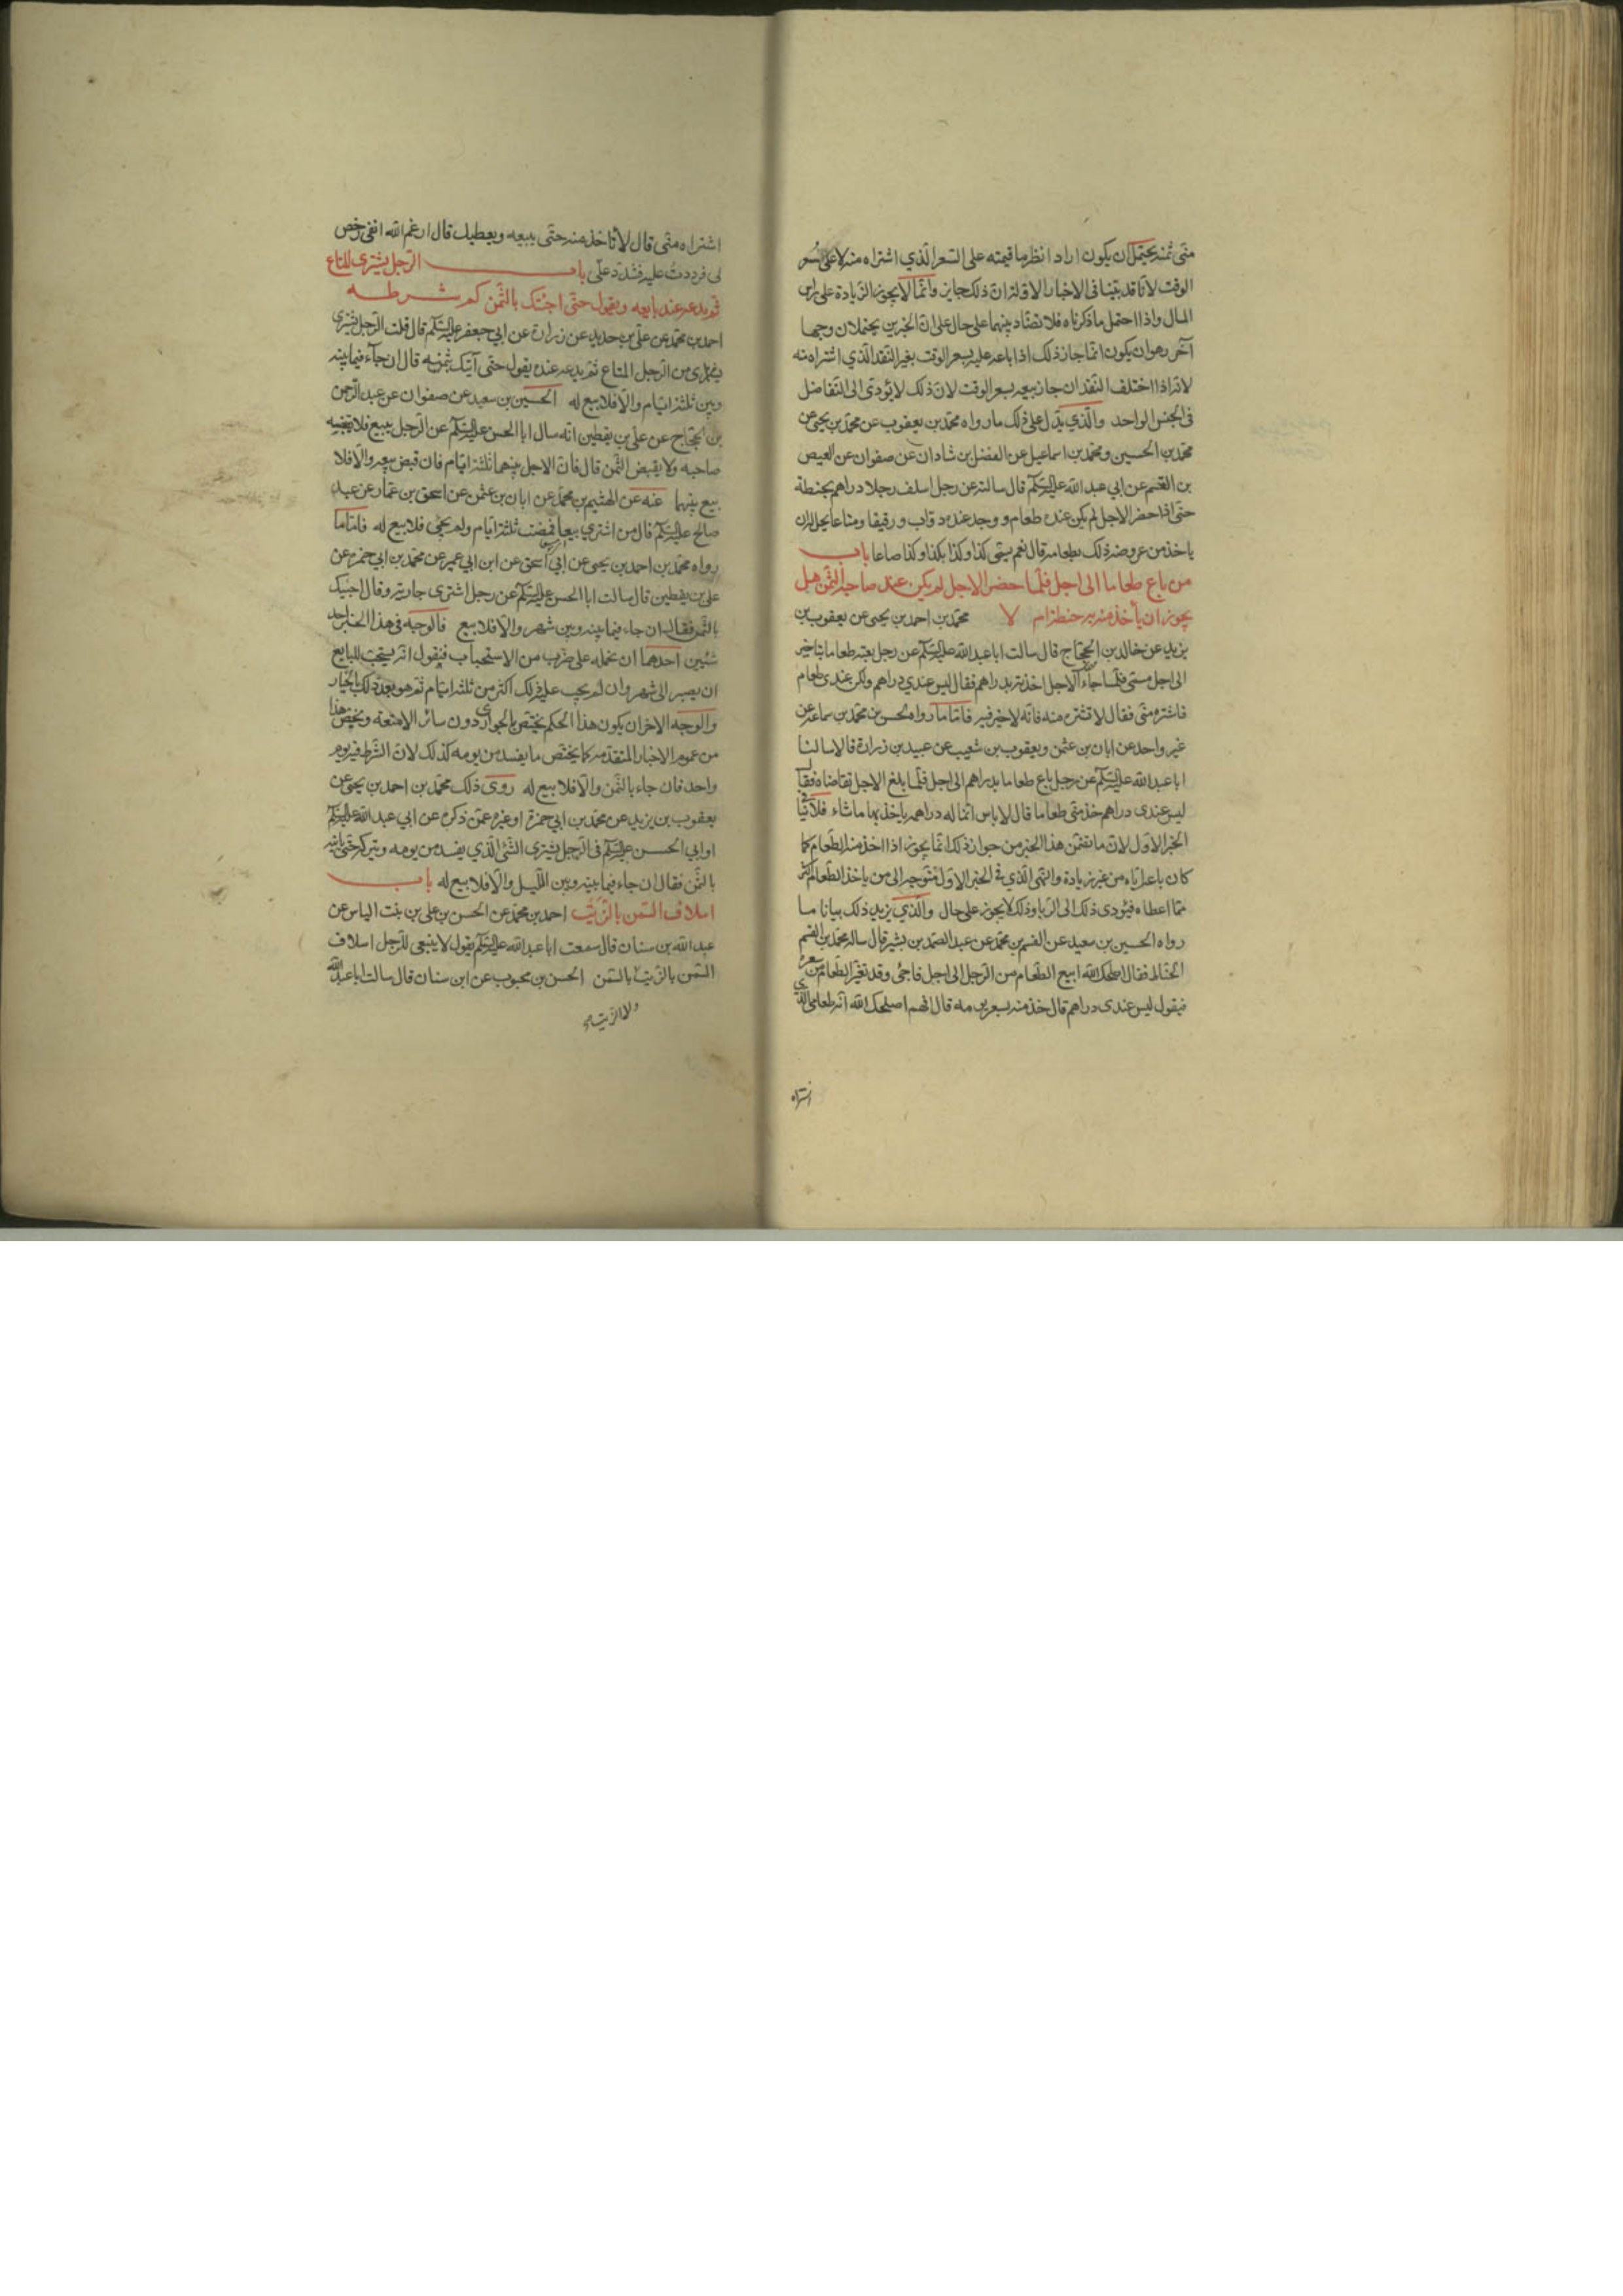 منّى ثمنه يحتمل ان يكون اراد انظر ما قيمته على السعر الّذي اشتراه منه لا على سعر
الوقت لانّا قد بيّنا في الاخبار الاوّلة انّ ذلك جايز وانّما لا يجوز الزيادة على راس
المال واذا احتمل ما ذكرناه فلا تضادّ بينهما على حال على انّ الخبرين يحتملان وجها
آخر وهو ان يكون انّما جاز ذلك اذا باعه عليه بسعر الوقت بغير النقد الّذي اشتراه به
لانّه اذا اختلف النقدان جاز بيعه بسعر الوقت لانّ ذلك لا يؤدّى الى التفاضل
في الجنس الواحد والّذي يدلّ على ذلك ما رواه محمّد بن يعقوب عن محمّد بن يحيى عن
محمّد بن الحسين ومحمّد بن اسماعيل عن الفضل بن شاذان عن صفوان عن العيص
بن القسم عن ابي عبد الله عليه السّلم قال سالته عن رجل اسلف رجلا دراهم بحنطة
حتى اذا حضر الاجل لم يكن عنده طعام ووجد عنده دوابّ ورقيقا ومتاعا يحلّ له ان
ياخذ من عروضه ذلك بطعامه قال نعم يسمّى كذا وكذا بكذا وكذا صاعا باب
من باع طعاما الى اجل فلمّا حضر الاجل لم يكن عند صاحبه الثمن هل
يجوز ان يأخذ منه حنطة ام لا محمّد بن احمد بن يحيى عن يعقوب بن
يزيد عن خالد بن الحجّاج قال سالت ابا عبد الله عليه السّلم عن رجل بعته طعاما بتاخير
الى اجل مسمّى فلمّا جاء الاجل اخذته بدراهم فقال ليس عندي دراهم ولكن عندى طعام
فاشتره منّى فقال لا تشتره منه فانّه لا خير فيه فامّا ما رواه الحسن بن محمّد بن سماعة عن
غير واحد عن ابان بن عثمن ويعقوب بن شعيب عن عبيد بن زرارة قالا سالنا
ابا عبد الله عليه السّلم عن رجل باع طعاما بدراهم الى اجل فلمّا بلغ الاجل تقاضاه فقال
ليس عندى دراهم خذ منّى طعاما قال لا باس انّما له دراهم ياخذ بها ما شاء فلا ينافي
الخبر الاوّل لانّ ما تضمّن هذا الخبر من جواز ذلك انّما يجوز اذا اخذ منه الطعام كما
كان باعه ايّاه من غير زيادة والنهى الّذي في الخبر الاوّل متوجه الى من ياخذ الطعام اكثر
ممّا اعطاه فيؤدى ذلك الى الربا وذلك لا يجوز على حال والّذي يزيد ذلك بيانا ما
رواه الحسين بن سعيد عن القسم بن محمّد عن عبد الصمد بن بشير قال ساله محمّد بن القسم
الحنّاط فقال اصلحك الله ابيع الطعام من الرجل الى اجل فاجئ وقد تغيّر الطعام من سعره
فيقول ليس عندى دراهم قال خذ منه بسعر يومه قال افهم اصلحك الله انّه طعامى الّذي
اشتراه
اشتراه منّى قال لا تاخذ منه حتّى يبيعه ويعطيك قال ارغم الله انفى رخص
لى فرددت عليه فشدّد علىّ باب الرجل يشترى المتاع
ثم يدعه عند بايعه ويقول حتّى اجئك بالثمن كم شرطه
احمد بن محمّد عن علي بن حديد عن زرارة عن ابي جعفر عليه السّلم قال قلت الرجل يشترى
من الرجل المتاع ثم يدعه عنده يقول حتى آتيك بثمنه قال ان جآء فيما بينه
وبين ثلثة ايّام والّا فلا بيع له الحسين بن سعيد عن صفوان عن عبد الرحمن
بن الحجّاج عن علي بن يقطين انّه سال ابا الحسن عليه السّلم عن الرجل يبيع فلا يقبضه
صاحبه ولا يقبض الثمن قال فانّ الاجل بينهما ثلثة ايّام فان قبض بيعه والّا فلا
بيع بينهما عنه عن الهيثم بن محمّد عن ابان بن عثمن عن اسحق بن عمّار عن عبد
صالح عليه السّلم قال من اشترى بيعا فمضت ثلثة ايّام ولم يجئ فلا بيع له فامّا ما
رواه محمّد بن احمد بن يحيى عن ابي اسحق عن ابن ابي عمير عن محمّد بن ابي حمزة عن
علي بن يقطين قال سالت ابا الحسن عليه السّلم عن رجل اشترى جارية وقال اجيئك
بالثمن فقال ان جاء فيما بينه وبين شهر والّا فلا بيع فالوجه في هذا الخبر احد
شيئين احدهما ان نحمله على ضرب من الاستحباب فنقول انّه يستحبّ للبايع
ان يصبر الى شهر وان لم يجب عليه ذلك اكثر من ثلثة ايّام ثم هو بعد ذلك بالخيار
والوجه الاخر ان يكون هذا الحكم يختصّ بالجوارى دون سائر الامتعة ونخصّ هذا
من عموم الاخبار المتقدّمة كما يختصّ ما يفسد من يومه كذلك لانّ الشرط فيه يوم
واحد فان جاء بالثمن والّا فلا بيع له روى ذلك محمّد بن احمد بن يحيى عن
يعقوب بن يزيد عن محمّد بن ابي حمزة او غيره عمّن ذكره عن ابي عبد الله عليه السّلم
او ابي الحسن عليه السّلم في الرجل يشترى الشئ الّذي يفسد من يومه ويتركه حتى ياتيه
بالثمن فقال ان جاء فيما بينه وبين الليل والّا فلا بيع له باب
اسلاف السمن بالزيت احمد بن محمّد عن الحسن بن علي بن بنت الياس عن
عبد الله بن سنان قال سمعت ابا عبد الله عليه السّلم يقول لا ينبغى للرجل اسلاف
السمن بالزيت ولا الزيت بالسمن الحسن بن محبوب عن ابن سنان قال سالت ابا عبد الله